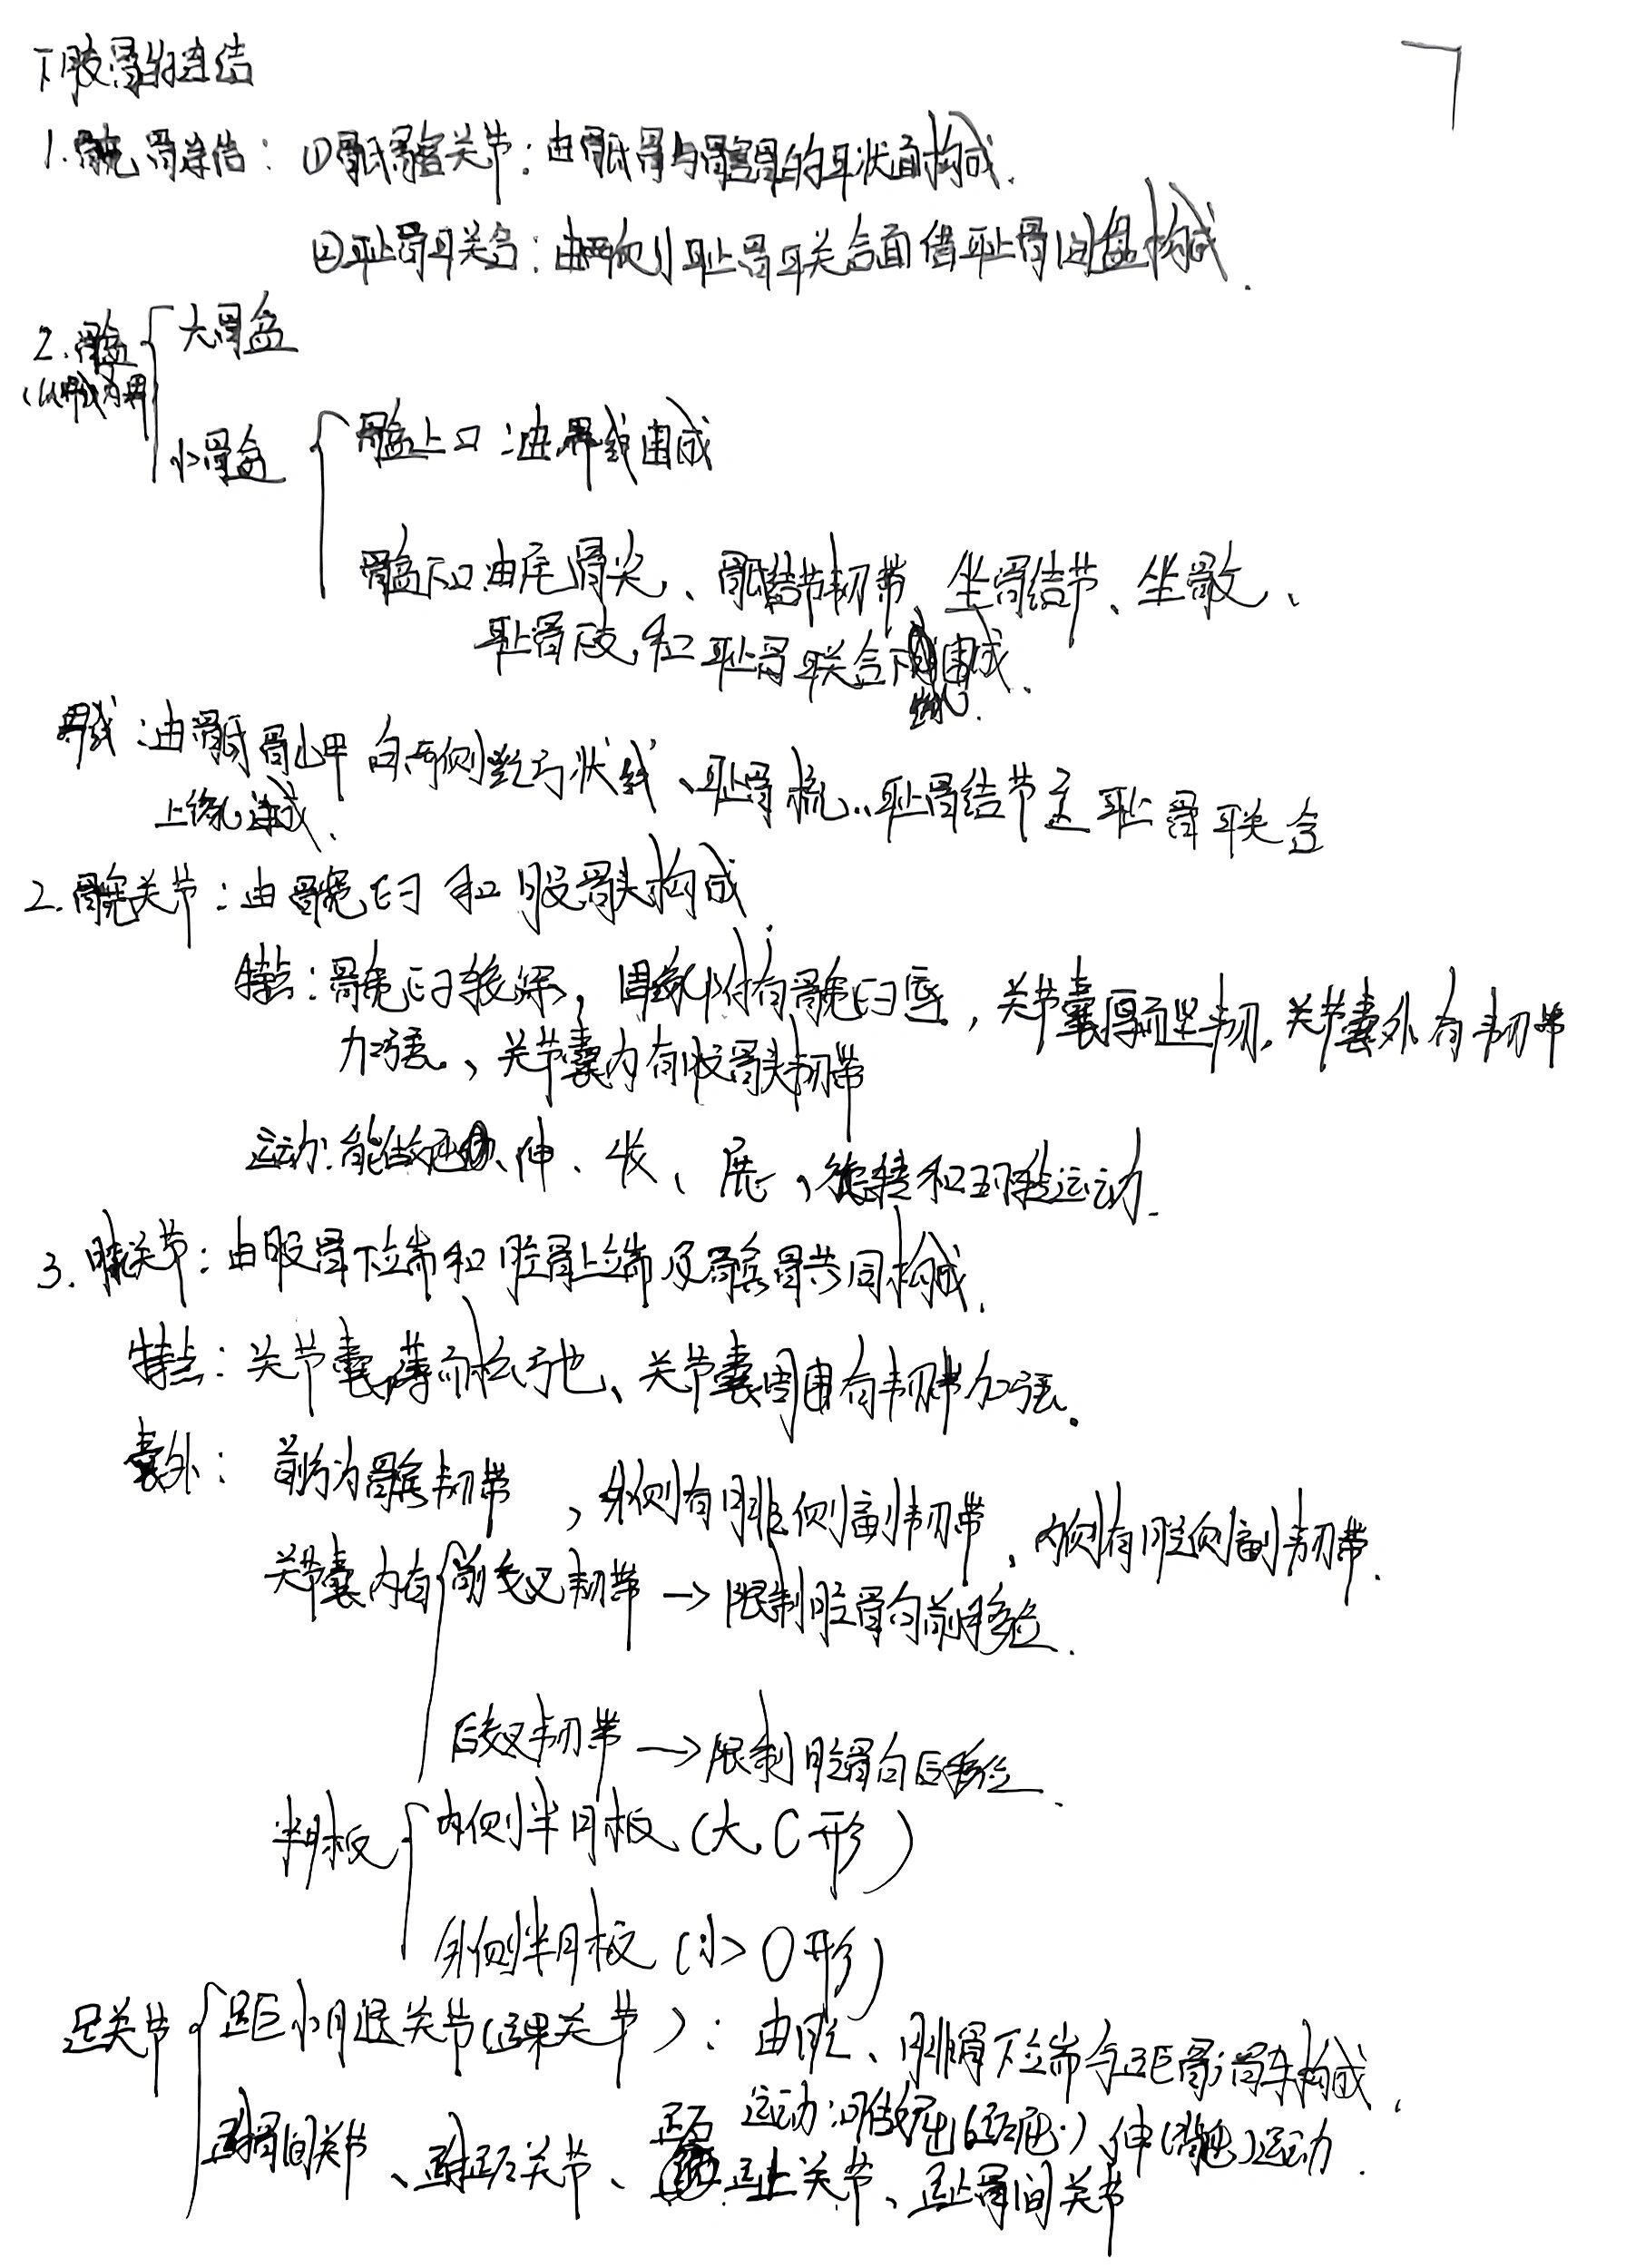 下肢骨的连结
1. 髋骨连结：①骶髂关节：由骶骨与髂骨的耳状面构成.
②耻骨联合：由两侧耻骨联合面借耻骨间盘构成.
2. 骨盆（以界线为界）
大骨盆
小骨盆
骨盆上口：由界线围成
骨盆下口：由尾骨尖、骶结节韧带、坐骨结节、坐骨支、
耻骨下支, 和耻骨联合下缘围成.
界线：由骶骨岬向两侧弓状线、耻骨梳、耻骨结节至耻骨联合
上缘连成.
2. 髋关节：由髋臼和股骨头构成
特点：髋臼较深, 周缘附有髋臼唇, 关节囊厚而坚韧, 关节囊外有韧带
加强、关节囊内有股骨头韧带
运动：能做屈、伸、收、展、旋转和环转运动.
3. 膝关节：由股骨下端和胫骨上端及髌骨共同构成.
特点：关节囊薄而松弛、关节囊周围有韧带加强.
囊外：前方为髌韧带, 外侧有腓侧副韧带、内侧有胫侧副韧带.
关节囊内有 前交叉韧带 → 限制胫骨向前移位.
后交叉韧带 → 限制胫骨向后移位.
半月板 内侧半月板 (大, C形)
外侧半月板 (小 O形)
足关节 距小腿关节(踝关节)：由胫、腓骨下端与距骨滑车构成.
运动：可做屈(跖屈)、伸(背屈)运动.
跗骨间关节、跗跖关节、跖趾关节、趾骨间关节